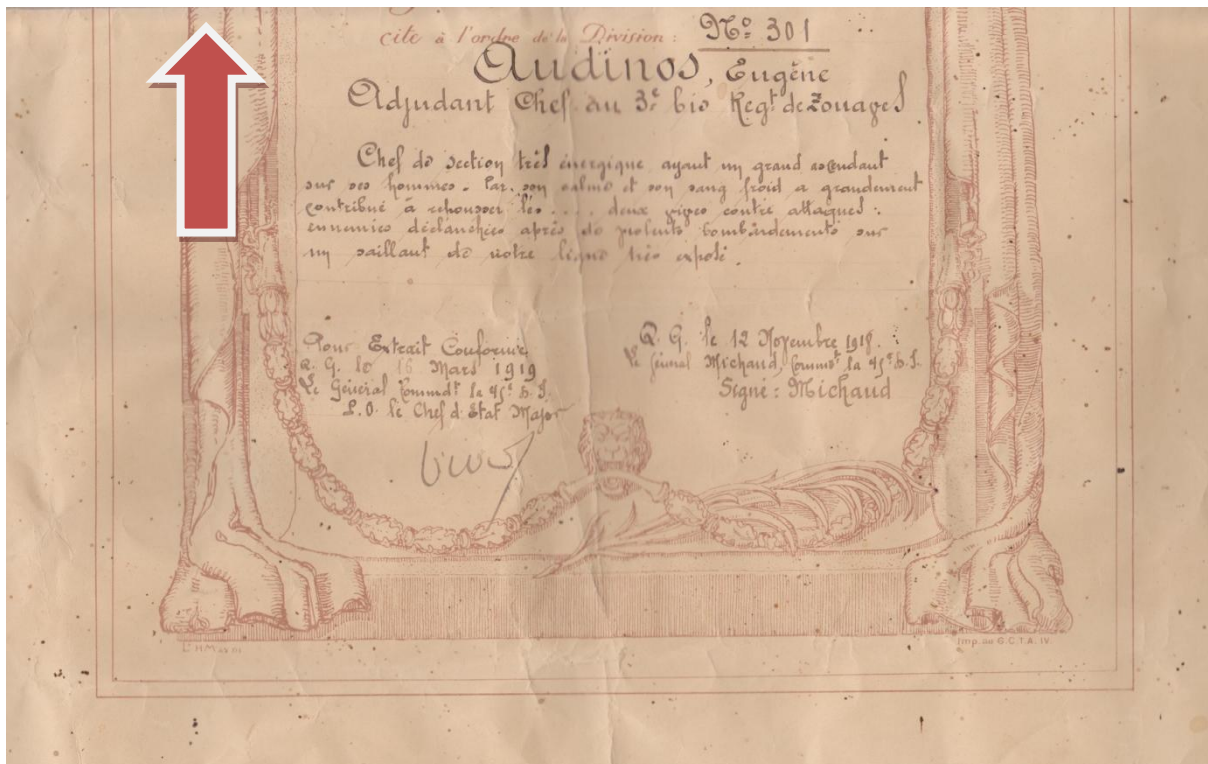 cité à l'ordre de la Division : No 301
Audinos, Eugène
Adjudant Chef au 3e bis Regt de Zouaves
Chef de section très énergique ayant un grand ascendant
sur ses hommes. Par son calme et son sang froid a grandement
contribué à repousser les .... deux contre attaques
ennemies déclanchées après de violents bombardements sur
un saillant de notre ligne très exposé.
Pour Extrait Conforme
Q. G. le 16 Mars 1919
Le Général Commdt la 45e D.I.
P.O. le Chef d'Etat Major
Q. G. le 12 Novembre 1918.
Le Général Michaud, Commdt la 45e D.I.
Signé : Michaud
Imp. du G.C.T.A. IV.